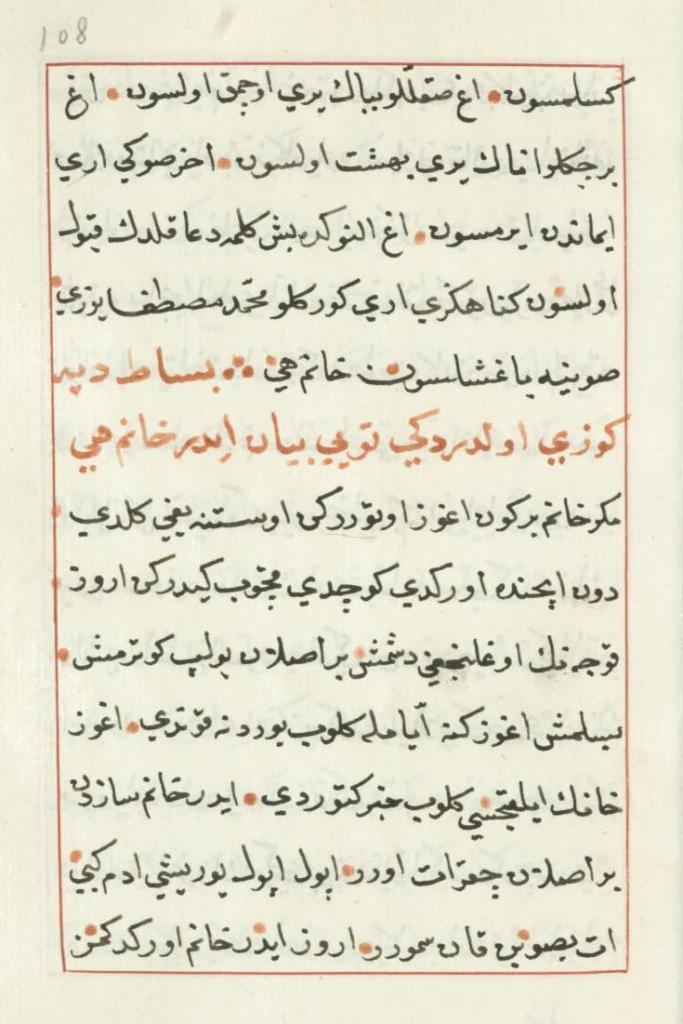 108
كسلمسون • اغ صقللو بباك يري اوچمق اولسون • اغ
برچكلو اناك يري بهشت اولسون • اخر صوكي اري
ايماندن ايرمسون • اغ النوكده بش كلمه دعا قلدك قبول
اولسون كناهكزي اري كوركلو محمّد مصطفا يوزي
صوينه باغشلسون خانم هي ∴ بساط دپه
كوزي اولدردكي بويي بيان ايدر خانم هي
مكر خانم بركون اغوز اوتوركن اوستنه يغي كلدي
دون ايچنده اوركدي كوچدي قچوب كيدركن اروز
قوجه نك اوغلنجغي دشمش بر اصلان بولپ كوترمش •
بسلمش اغوز كنه ايامله كلوب يوردنه قوندي • اغوز
خانك ايلقيجسي كلوب خبر كتوردي • ايدر خانم سازدن
بر اصلان چقر ات اورر • اپول اپول يوريشي ادم كبي
ات بصوبن قان سمورر • اروز ايدر خانم اوركدكمز